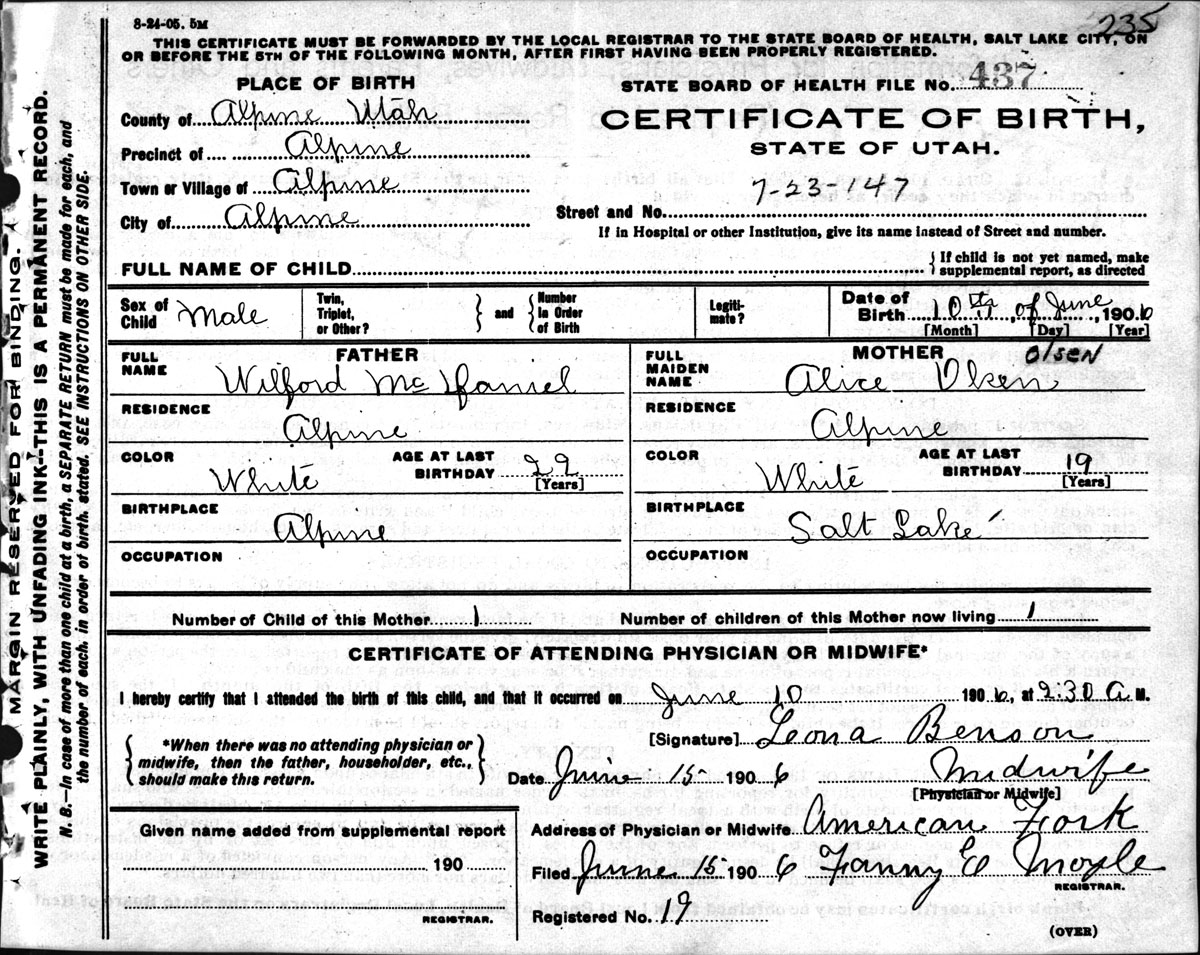 8-24-05. 5M
235
THIS CERTIFICATE MUST BE FORWARDED BY THE LOCAL REGISTRAR TO THE STATE BOARD OF HEALTH, SALT LAKE CITY, ON
OR BEFORE THE 5TH OF THE FOLLOWING MONTH, AFTER FIRST HAVING BEEN PROPERLY REGISTERED.
PLACE OF BIRTH
STATE BOARD OF HEALTH FILE No. 437
County of Alpine Utah
CERTIFICATE OF BIRTH,
STATE OF UTAH.
Precinct of Alpine
Town or Village of Alpine
7-23-147
City of Alpine
Street and No.
If in Hospital or other Institution, give its name instead of Street and number.
FULL NAME OF CHILD
{ If child is not yet named, make
supplemental report, as directed
Sex of Child Male
Twin, Triplet, or Other?
and
Number In Order of Birth
Legiti-mate?
Date of Birth 10th of June 1906
[Month] [Day] [Year]
FATHER
FULL NAME Wilford Mc Daniel
RESIDENCE
Alpine
COLOR White
AGE AT LAST BIRTHDAY 22
[Years]
BIRTHPLACE
Alpine
OCCUPATION
MOTHER Olsen
FULL MAIDEN NAME Alice Olsen
RESIDENCE
Alpine
COLOR White
AGE AT LAST BIRTHDAY 19
[Years]
BIRTHPLACE
Salt Lake
OCCUPATION
Number of Child of this Mother 1
Number of children of this Mother now living 1
CERTIFICATE OF ATTENDING PHYSICIAN OR MIDWIFE*
I hereby certify that I attended the birth of this child, and that it occurred on June 10 1906, at 2:30 A. M.
*When there was no attending physician or
midwife, then the father, householder, etc.,
should make this return.
[Signature] Leona Benson
Date June 15 1906 Midwife
[Physician or Midwife]
Given name added from supplemental report
190
REGISTRAR.
Address of Physician or Midwife American Fork
Filed June 15 1906 Fanny E Moyle
REGISTRAR.
Registered No. 19
(OVER)
MARGIN RESERVED FOR BINDING.
WRITE PLAINLY, WITH UNFADING INK--THIS IS A PERMANENT RECORD.
N. B.—In case of more than one child at a birth, a SEPARATE RETURN must be made for each, and
the number of each, in order of birth, stated. SEE INSTRUCTIONS ON OTHER SIDE.